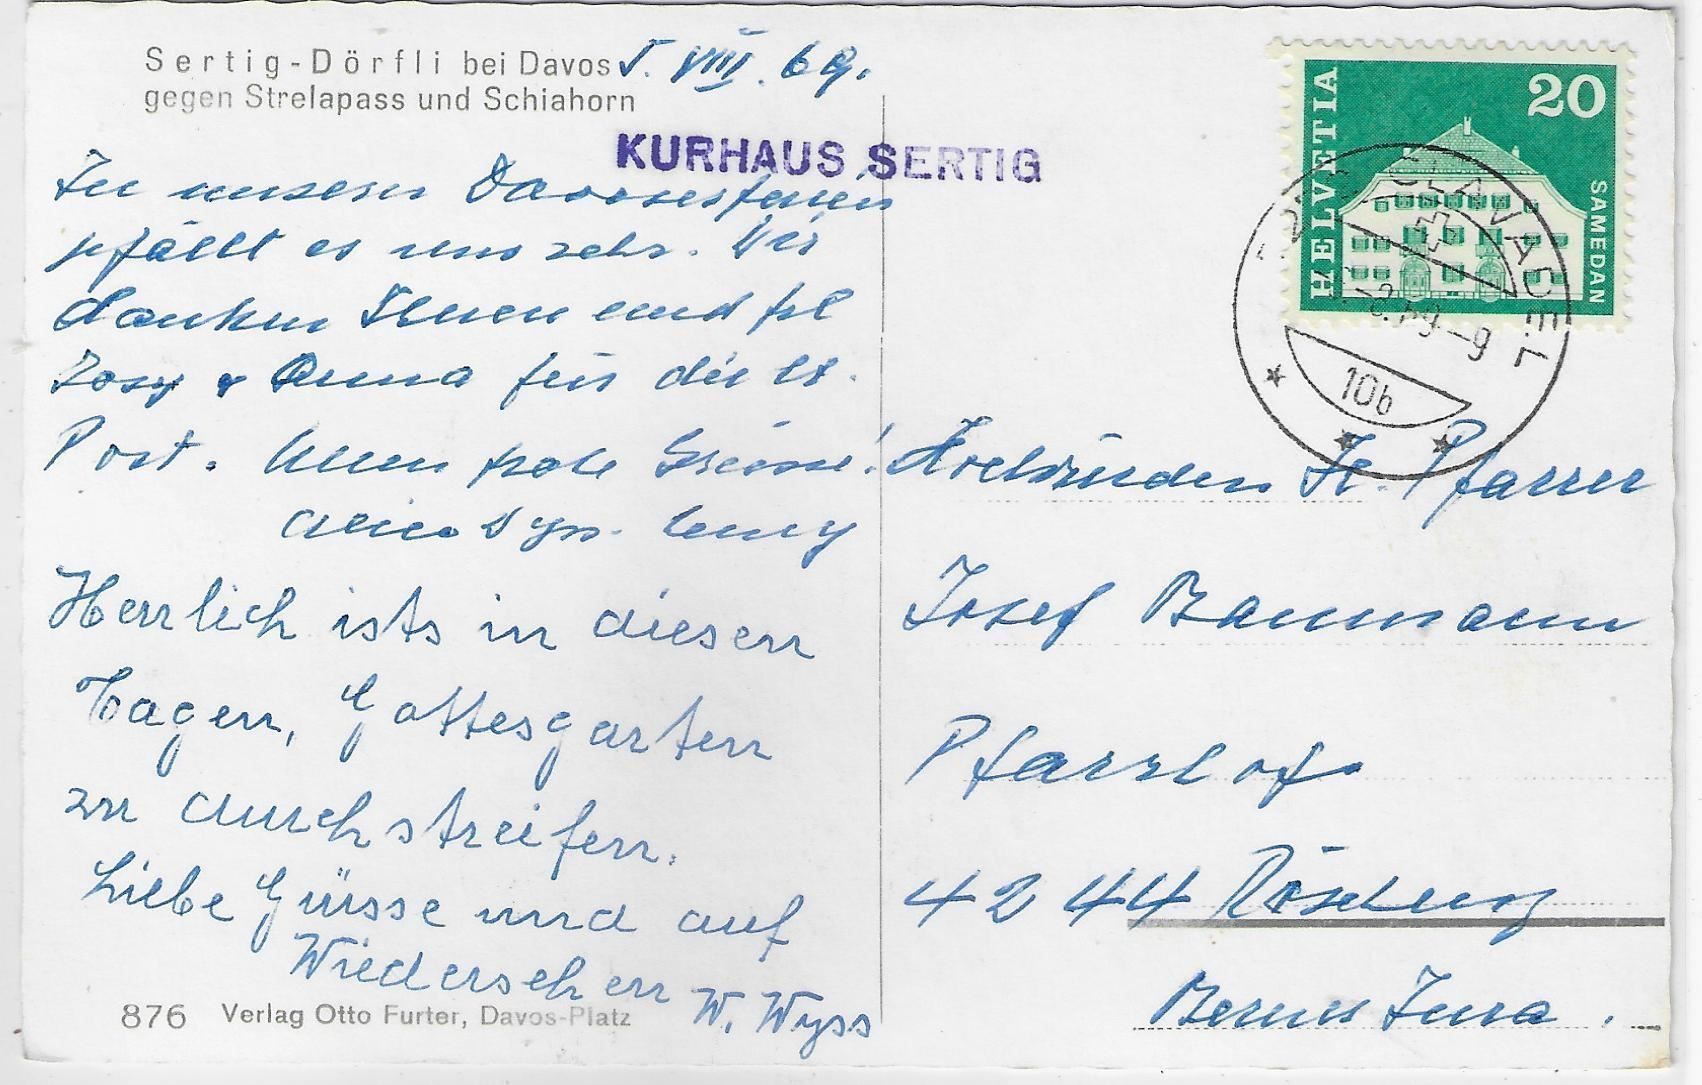 Sertig-Dörfli bei Davos
gegen Strelapass und Schiahorn
5. VIII. 69.
KURHAUS SERTIG
In unseren Davoserferien
gefällt es uns sehr. Wir
danken Ihnen und frl
Rosy & Anna für die lb.
Post. Allen frohe Grüsse!
Wyss
Herrlich ists in diesen
Tagen, Gottesgarten
zu durchstreifen.
Liebe Grüsse und auf
Wiedersehen W. Wyss
876 Verlag Otto Furter, Davos-Platz
HELVETIA
20
SAMEDAN
CLAVADEL
-8.69-9
10b
Hochwürden H. Pfarrer
Josef Baumann
Pfarrhof
4244 Röschenz
Berner Jura.